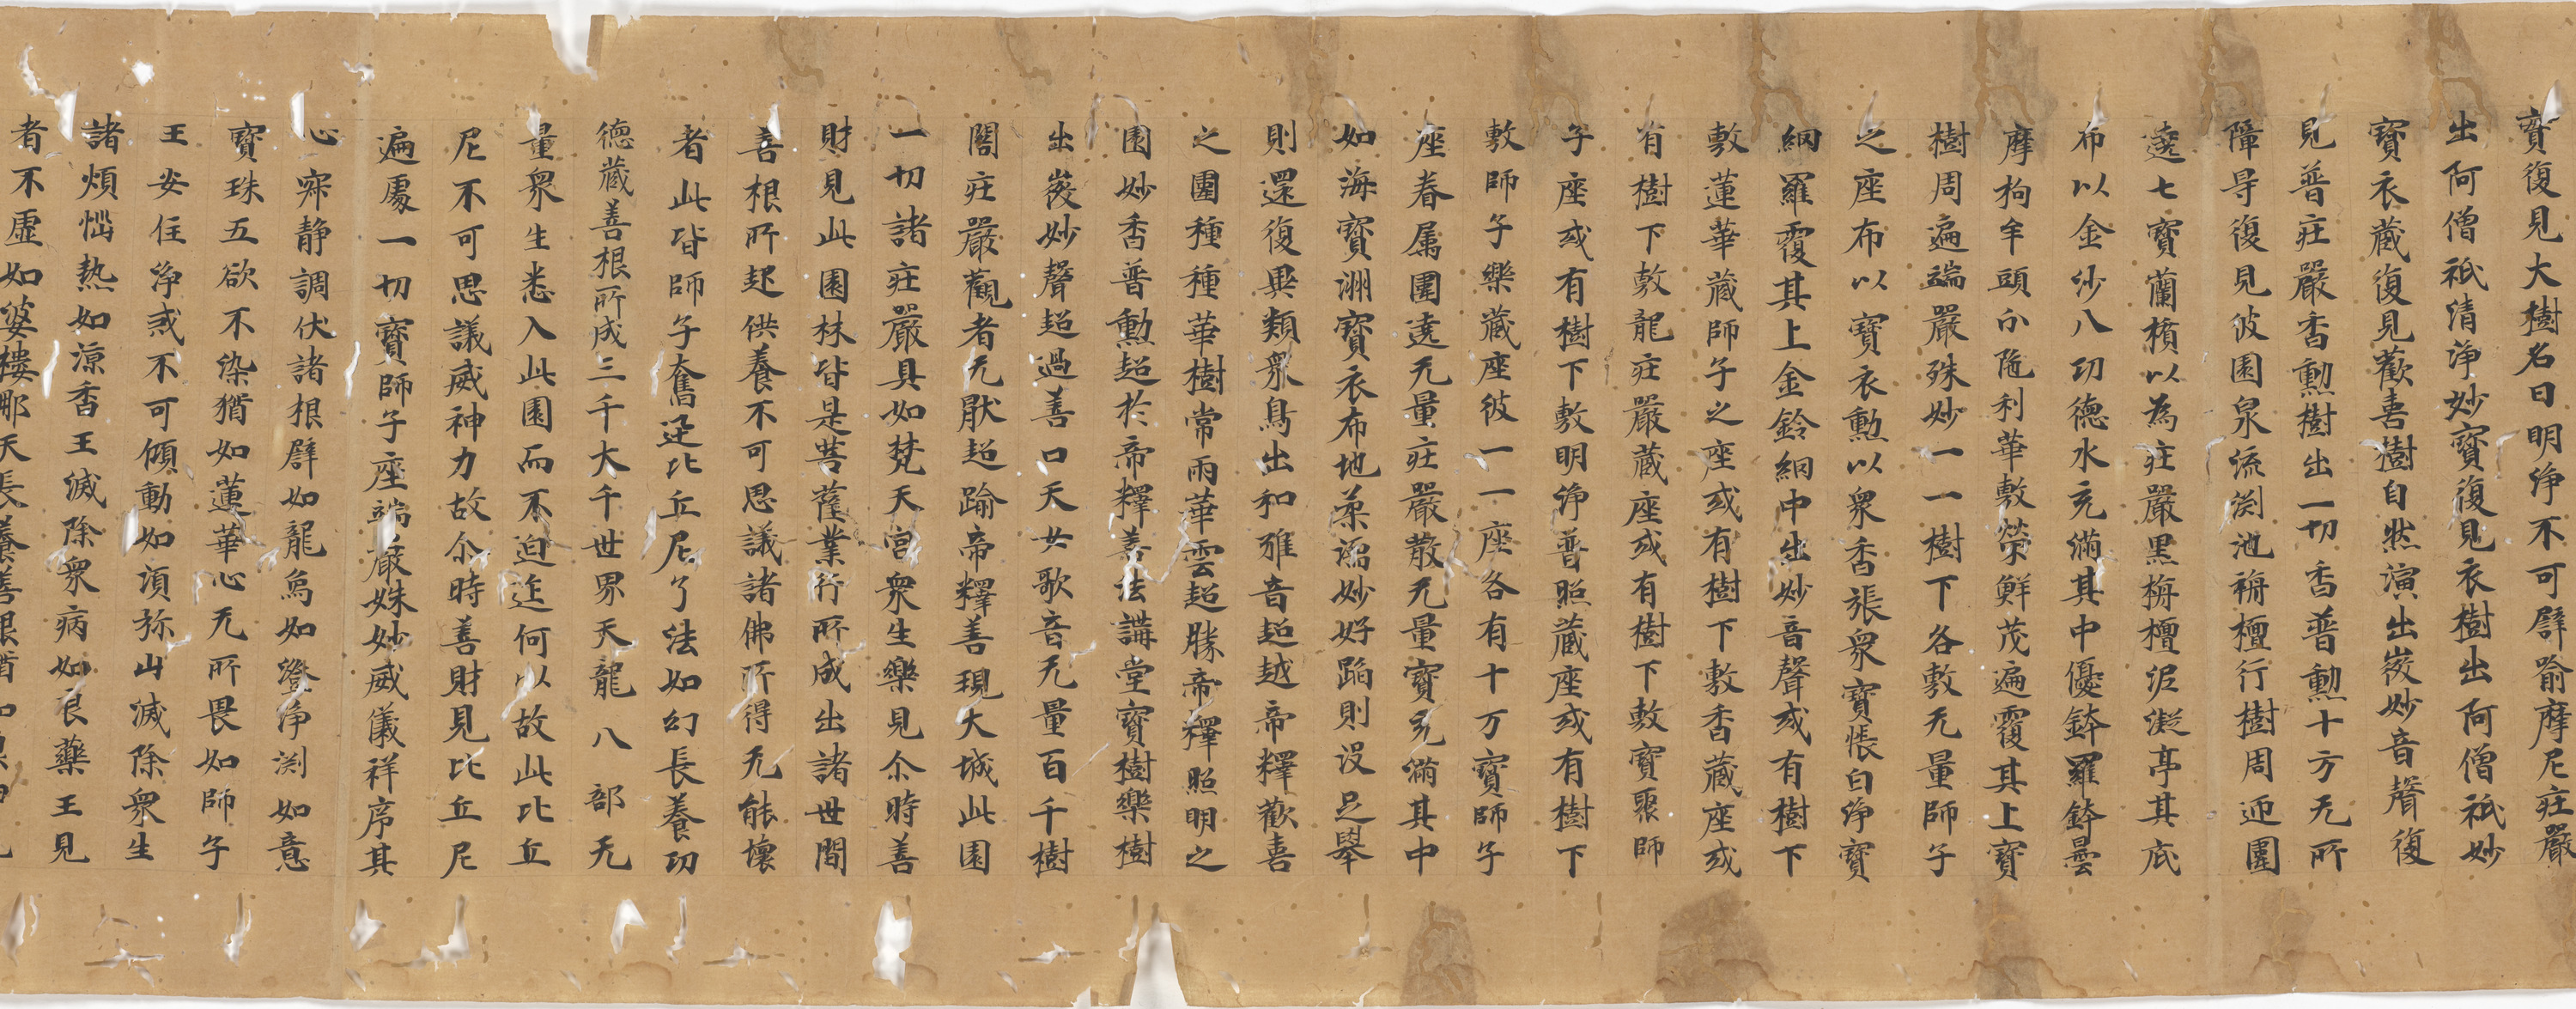 寶復見大樹名曰明淨不可辟喻摩尼莊嚴
出阿僧祇清淨妙寶復見衣樹出阿僧祇妙
寶衣藏復見歡喜樹自然演出㣲妙音聲復
見普莊嚴香勳樹出一切香普勳十方无所
障㝵復見彼園泉流渕池栴檀行樹周迊圍
遶七寶蘭楯以為莊嚴黑栴檀泥凝亭其底
布以金沙八功德水充滿其中優鉢羅鉢曇
摩拘牟頭分陁利華敷榮鮮茂遍覆其上寶
樹周遍端嚴殊妙一一樹下各敷无量師子
之座布以寶衣勳以衆香張衆寶帳白淨寶
網羅覆其上金鈴網中出妙音聲或有樹下
敷蓮華藏師子之座或有樹下敷香藏座或
有樹下敷龍莊嚴藏座或有樹下敷寶聚師
子座或有樹下敷明淨普照藏座或有樹下
敷師子樂藏座彼一一座各有十万寶師子
座眷属圍遶无量莊嚴散无量寶充滿其中
如海寶洲寶衣布地柔濡妙好蹈則没足舉
則還復異類衆鳥出和雅音超越帝釋歡喜
之園種種華樹常雨華雲超勝帝釋照明之
園妙香普勳超於帝釋善法講堂寶樹樂樹
出㣲妙聲超過善口天女歌音无量百千樹
閣莊嚴觀者无猒超踰帝釋善現大城此園
一切諸莊嚴具如梵天宮衆生樂見尒時善
財見此園林皆是菩薩業行所成出諸世間
善根所起供養不可思議諸佛所得无能壞
者此皆師子奮迅比丘尼了法如幻長養功
德藏善根所成三千大千世界天龍八部无
量衆生悉入此園而不迫迮何以故此比丘
尼不可思議威神力故尒時善財見比丘尼
遍處一切寶師子座端嚴姝妙威儀祥序其
心寂静調伏諸根辟如龍象如澄淨渕如意
寶珠五欲不染猶如蓮華心无所畏如師子
王安住淨戒不可傾動如須弥山滅除衆生
諸煩惱熱如涼香王滅除衆病如良藥王見
者不虛如婆樓那天長養善根猶如